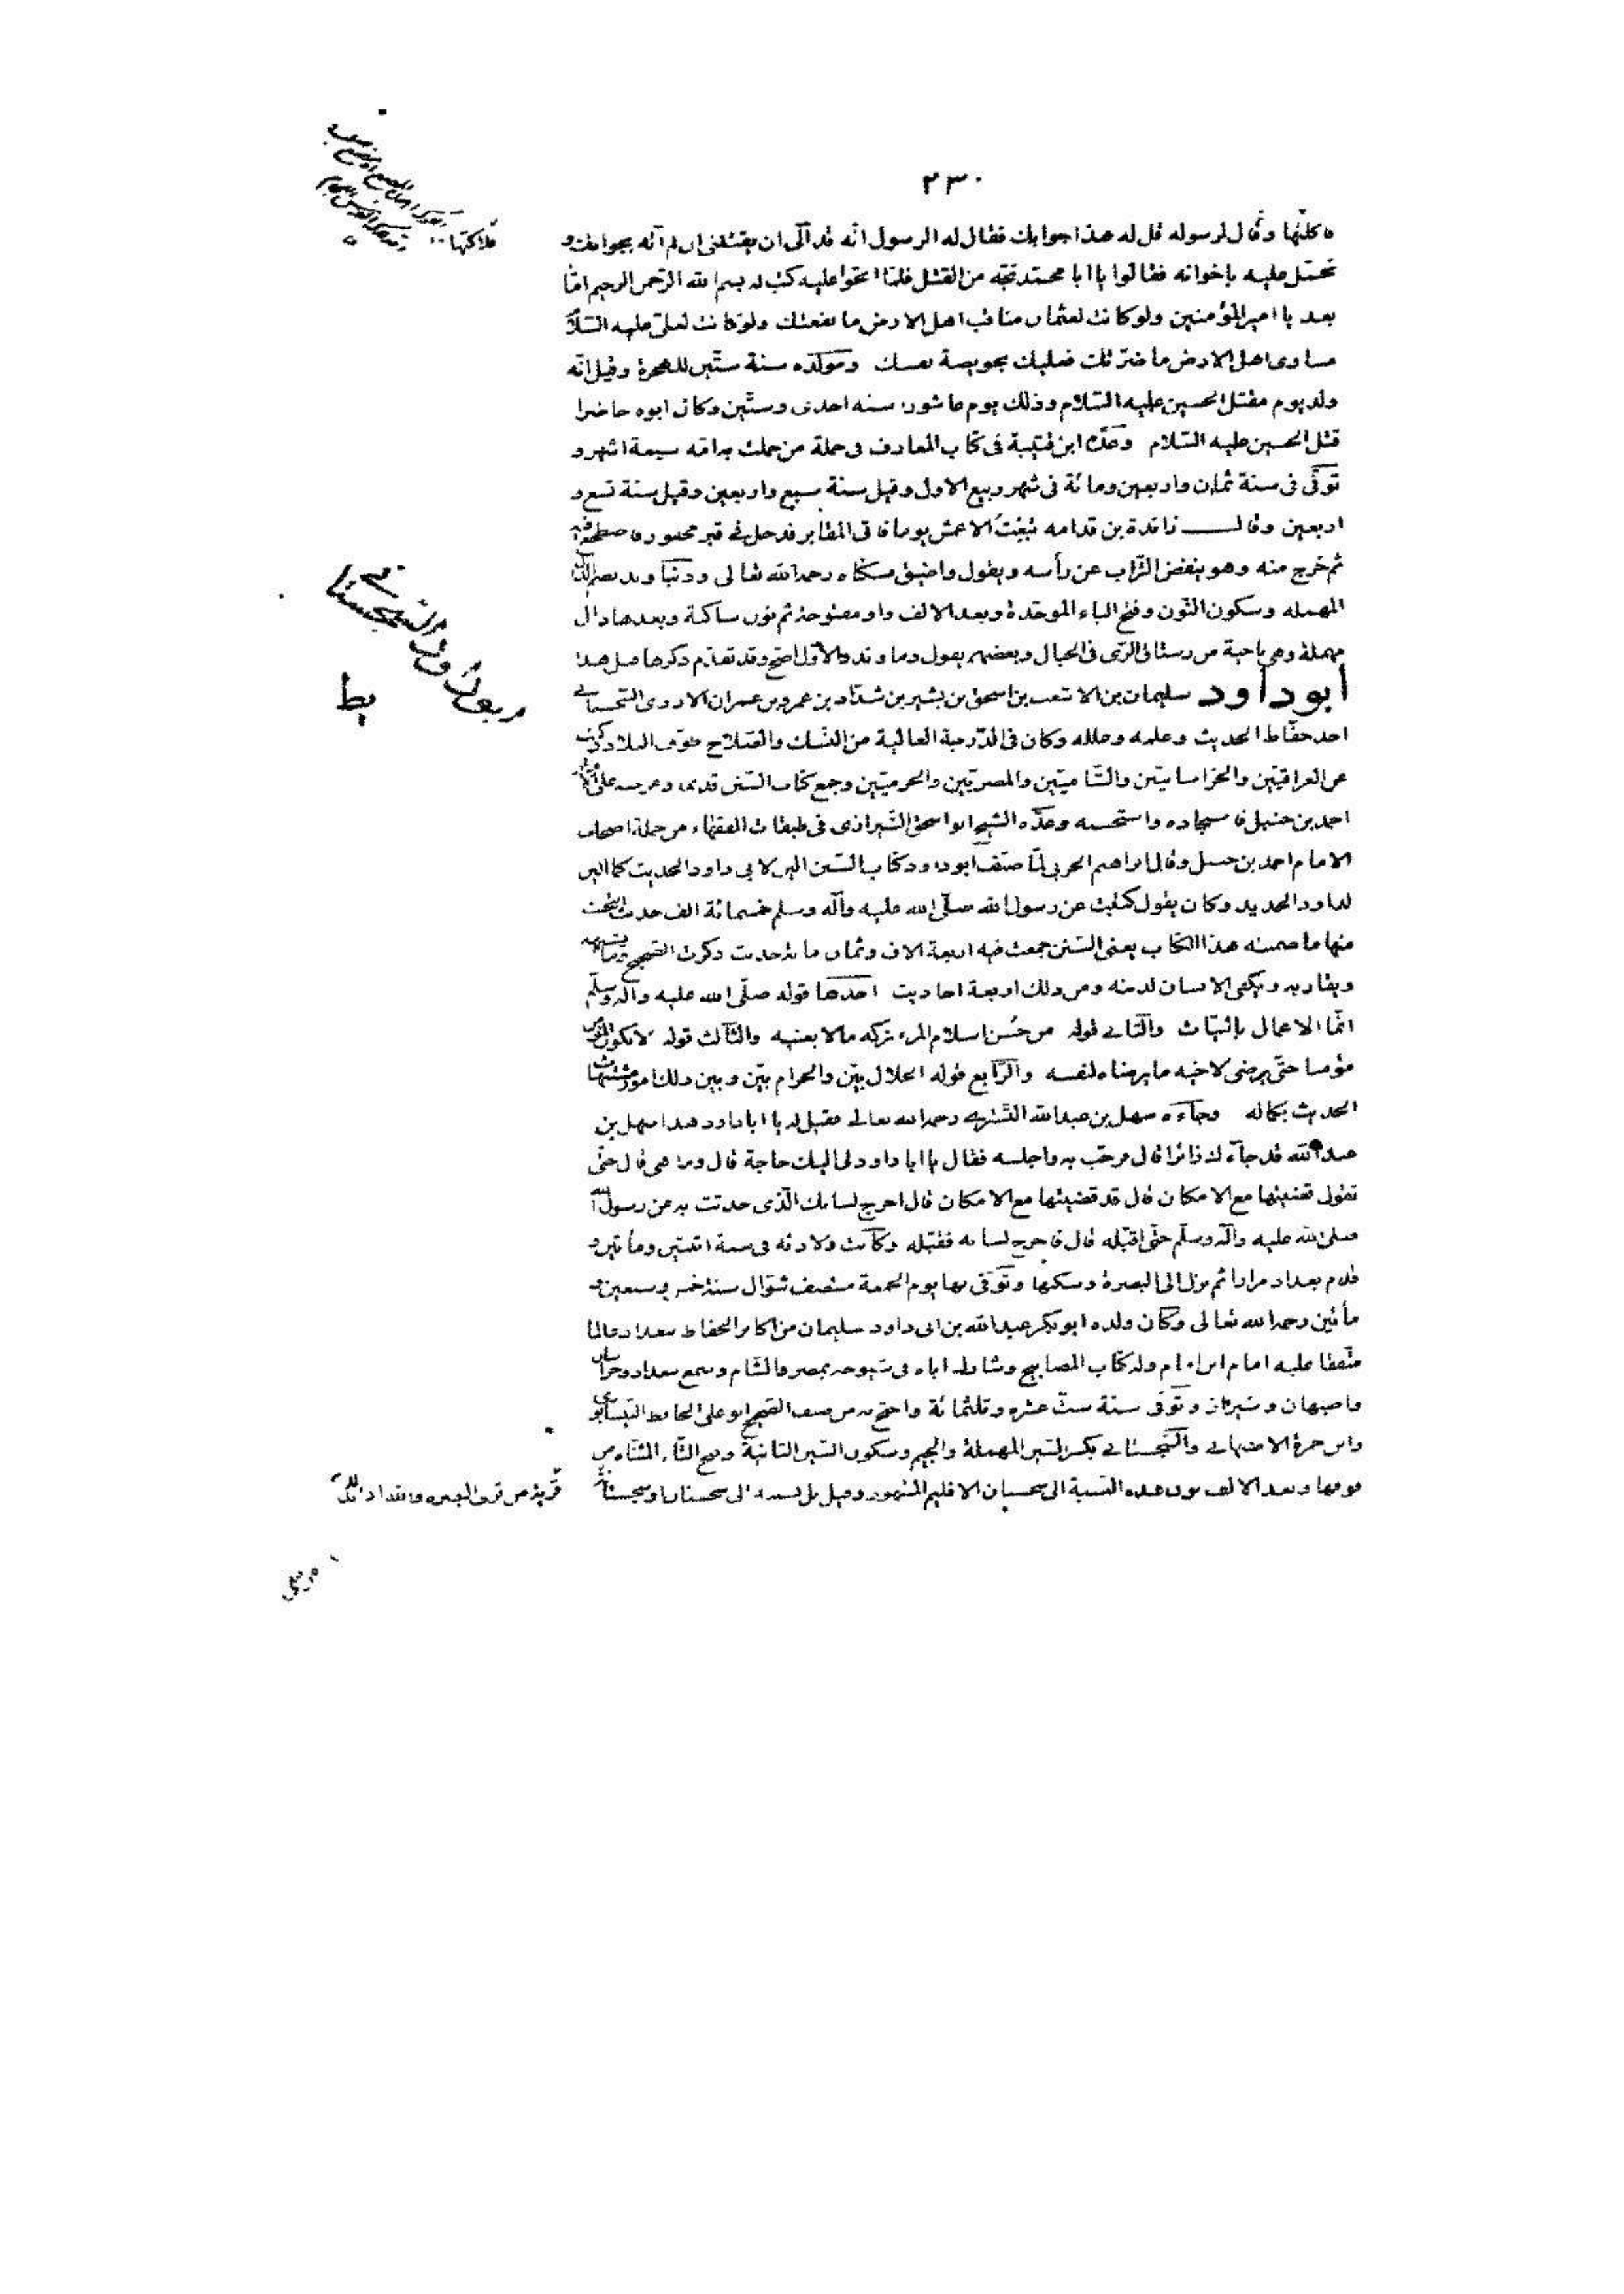 ٢٣٠
فلاكتها وقال لرسوله قل له هذا جوابك فقال له الرسول انه قد آلى ان يقتلنى ان لم آته بجوابك و
تحمّل عليه باخوانه فقالوا يا ابا محمد نجّه من القتل فلمّا الحّوا عليه كتب له بسم الله الرّحمن الرحيم امّا
بعد يا امير المؤمنين ولو كانت لعثمان مناقب اهل الارض ما نفعتك ولو كانت لعلىّ عليه السّلام
مساوى اهل الارض ما ضرّتك فعليك بخويصة نفسك ومولده سنة ستّين للهجرة وقيل انّه
ولد يوم مقتل الحسين عليه السّلام وذلك يوم عاشورا سنه احدى وستّين وكان ابوه حاضرا
قتل الحسين عليه السّلام وعدّه ابن قتيبة فى كتاب المعارف فى جملة من حملت به امّه سبعة اشهر و
توفّى فى سنة ثمان واربعين ومائة فى شهر ربيع الاول وقيل سنة سبع واربعين وقيل سنة تسع و
اربعين وقال زائدة بن قدامه تبعت الاعمش يوما فاتى المقابر فدخل فى قبر محفور فاضطجع فيه
ثم خرج منه وهو ينفض التّراب عن رأسه ويقول واضيق مسكناه رحمه الله تعالى ودنباوند بضم الدال
المهمله وسكون النّون وفتح الباء الموحّدة وبعد الالف واو مفتوحة ثم نون ساكنة وبعدها دال
مهملة وهى ناحية من رستاق الرّى فى الجبال وبعضهم يقول دماوند والاوّل اصحّ وقد تقدّم ذكرها قبل هذا
أبو داود سليمان بن الاشعث بن اسحق بن بشير بن شدّاد بن عمرو بن عمران الازدى السّجستانى
احد حفّاظ الحديث وعلمه وعلله وكان فى الدّرجة العالية من النّسك والصّلاح طوّف البلاد وكتب
عن العراقيّين والخراسانيّين والشّاميّين والمصريّين والحرميّين وجمع كتاب السّنن قديما وعرضه على
احمد بن حنبل فاستجاده واستحسنه وعدّه الشيخ ابو اسحق الشّيرازى فى طبقات الفقهاء من جملة اصحاب
الامام احمد بن حنبل وقال ابراهيم الحربى لمّا صنّف ابو داود كتاب السّنن الين لابى داود الحديث كما الين
لداود الحديد وكان يقول كتبت عن رسول الله صلّى الله عليه وآله وسلم خمسمائة الف حديث انتخبت
منها ما ضمنته هذا الكتاب يعنى السّنن جمعت فيه اربعة الاف وثمان مائة حديث ذكرت الصّحيح وما يشبهه
ويقاربه ويكفى الانسان لدينه ومن ذلك اربعة احاديث احدها قوله صلّى الله عليه وآله وسلّم
انّما الاعمال بالنيّات والثّانى قوله من حُسن اسلام المرء تركه ما لا يعنيه والثّالث قوله لا يكون المؤمن
مؤمنا حتّى يرضى لاخيه ما يرضاه لنفسه والرّابع قوله الحلال بيّن والحرام بيّن وبين ذلك امور مشتبهات
الحديث بكماله وجاءه سهل بن عبدالله التّسترى رحمه الله تعالى فقيل له يا ابا داود هذا سهل بن
عبدالله قد جاءك زائرا قال فرحّب به واجلسه فقال يا ابا داود لى اليك حاجة قال وما هى قال حتّى
تقول قضيتها مع الامكان قال قد قضيتها مع الامكان قال اخرج لسانك الّذى حدثت به عن رسول الله
صلى الله عليه وآله وسلّم حتّى اقبّله قال فاخرج لسانه فقبّله وكانت ولادته فى سنة اثنتين ومأتين و
قدم بغداد مرارا ثم نزل الى البصرة وسكنها وتوفّى بها يوم الجمعة منتصف شوّال سنة خمس وسبعين و
مأتين رحمه الله تعالى وكان ولده ابو بكر عبدالله بن ابى داود سليمان من اكابر الحفاظ ببغداد عالما
متّفقا عليه امام ابن امام وله كتاب المصابيح وشارك اباه فى شيوخه بمصر والشّام وسمع ببغداد وخراسان
واصبهان وشيراز وتوفّى سنة ستّ عشره وثلثمائة واحتجّ به من صنف الصّحيح ابو على الحافظ النّيسابورى
وابن حمزة الاصبهانى والسّجستانى بكسر السّين المهملة والجيم وسكون السّين الثانية وفتح التّاء المثنّاة من
فوقها وبعد الالف نون هذه النّسبة الى سجستان الاقليم المشهور وقيل بل نسبته الى سجستان او سجستانة
قرية من قرى البصره والله اعلم
ابو داود السجستانى